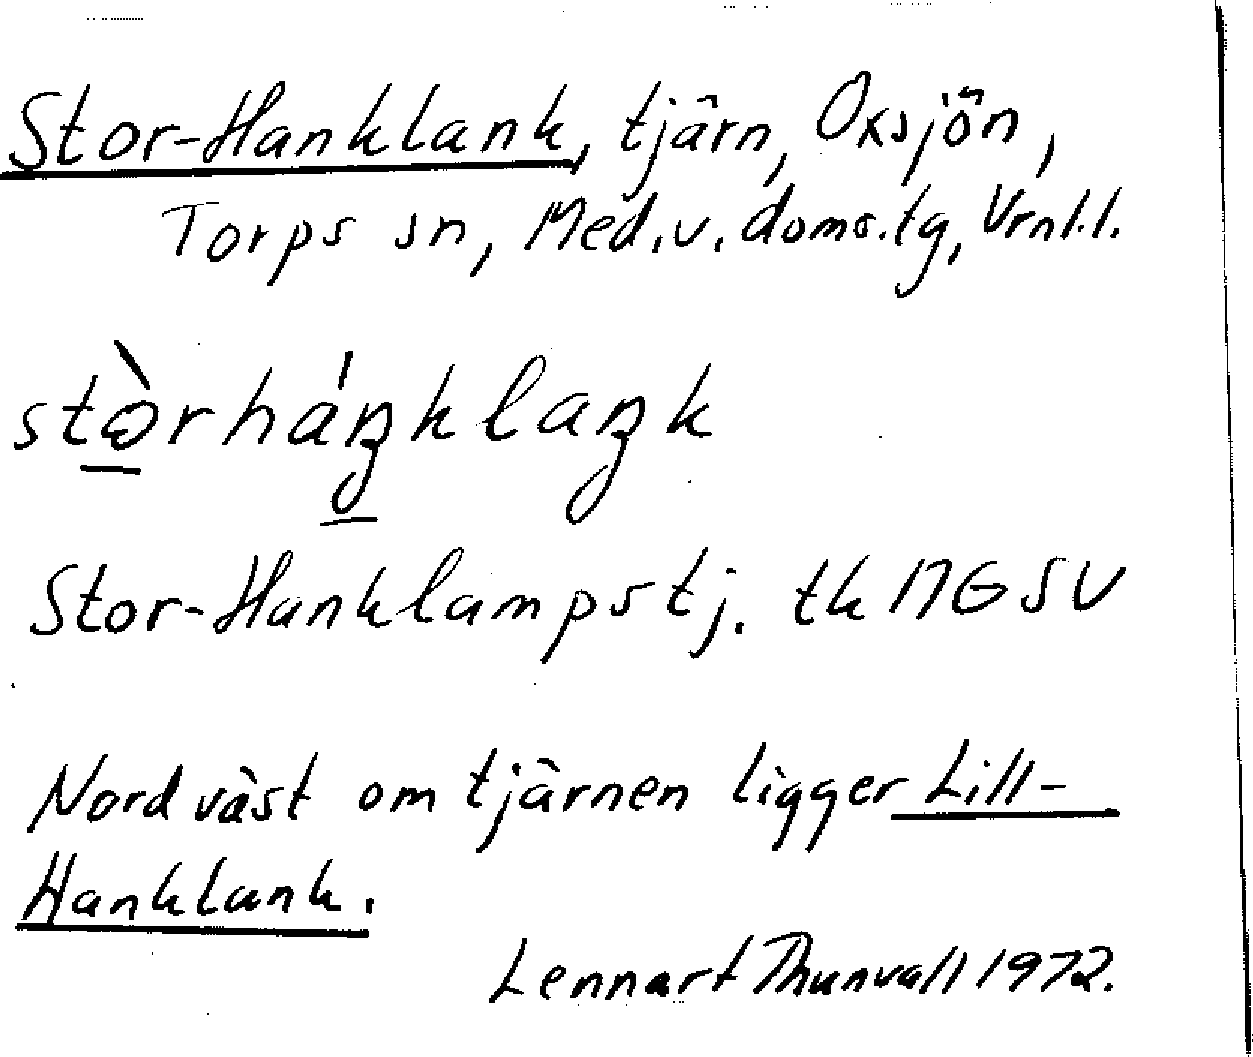 Stor-Hanklank, tjärn, Oxsjön,
Torps sn, Med.v. doms.tg, Vrnl.l.
stòrháŋklaŋk
Stor-Hanklampstj. tk NGSV
Nordväst om tjärnen ligger Lill-
Hanklank.
Lennart Thunvall 1972.